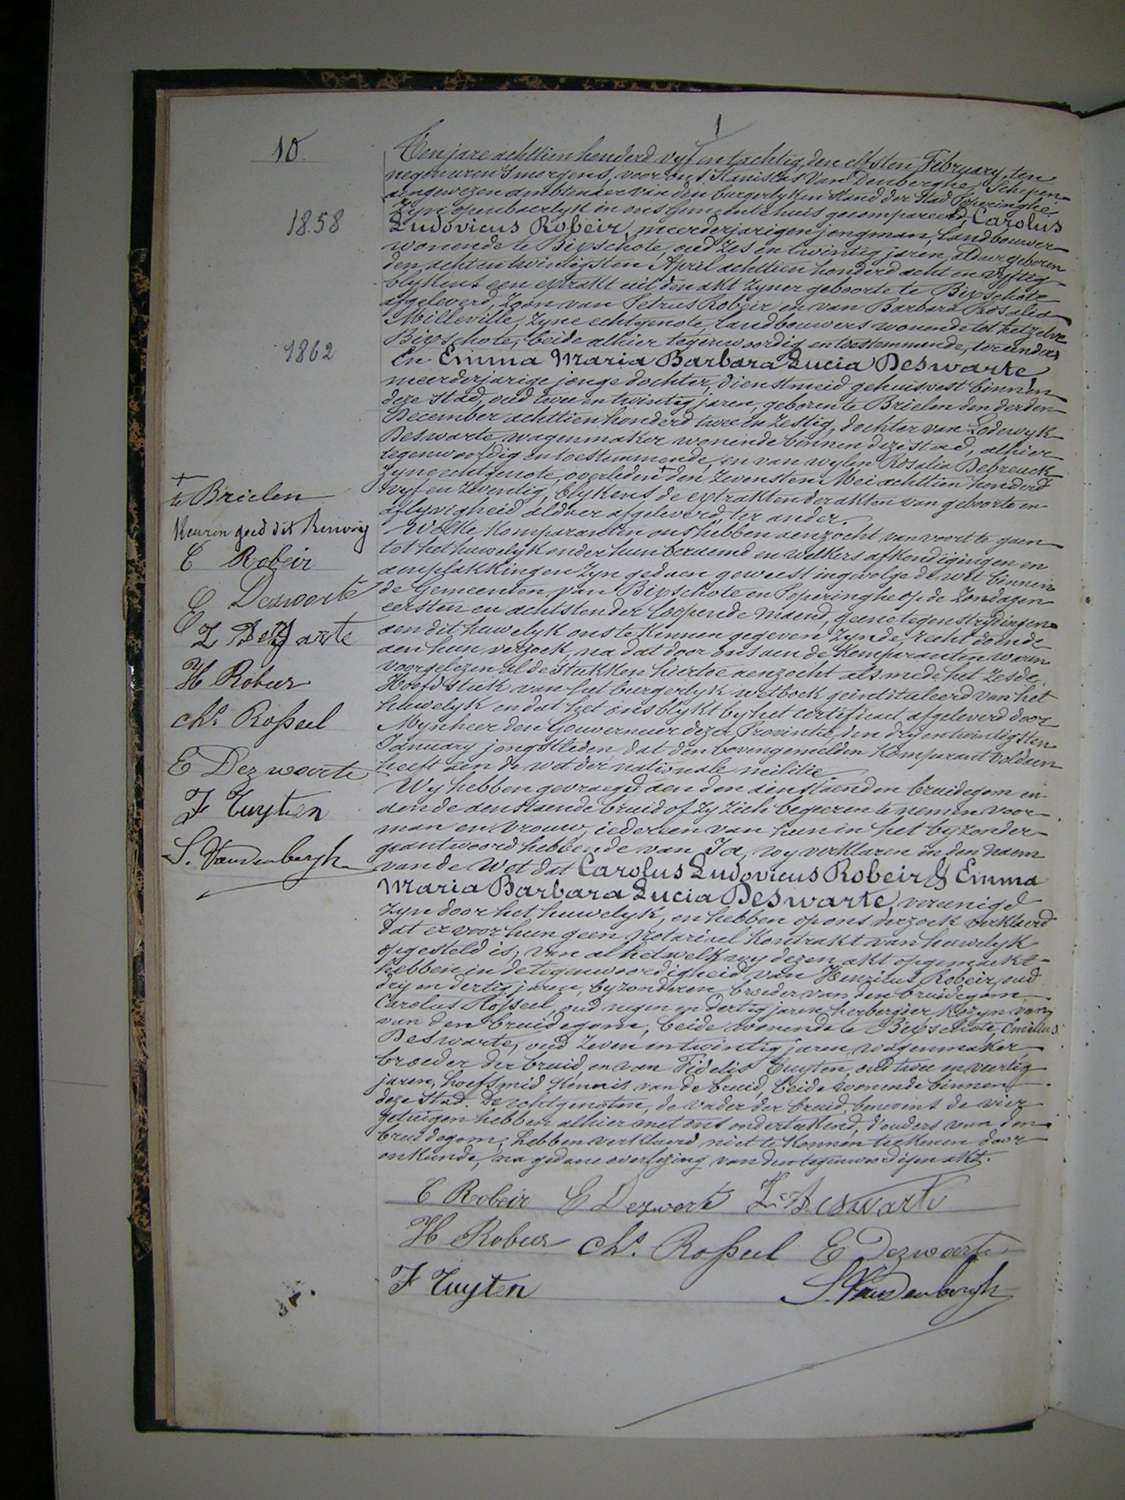 1
10.
Ten jare achttien honderd vyf en tachtig, den elfsten February, ten
negen uren 's morgens, voor ons Stanislas Van Denberghe, Schepen
aengewezen ambtenaer van den burgerlyken Stand der Stad Poperinghe,
Zyn openbaerlyk in ons Gemeentehuis gecompareerd, Carolus
1858
Ludovicus Robeir, meerderjarigen jongman, landbouwer
wonende te Bixschote, oud zes en twintig jaren, aldaer geboren
den achtentwintigsten April achttien honderd acht en vyftig
blykens een extrakt uit den akt zyner geboorte te Bixschote
afgeleverd, Zoon van Petrus Robeir en van Barbara Rosalia
Milleville, Zyne echtgenote, landbouwers wonende tot hetzelve
Bixschote, beide alhier tegenwoordig en toestemmende, ter eender
1862
En Emma Maria Barbara Lucia Deswarte,
meerderjarige jonge dochter, dienstmeid gehuisvest binnen
deze stad, oud twee en twintig jaren, geboren te Brielen den derden
December achttien honderd twee en zestig, dochter van Lodewyk
Deswarte, wagenmaker wonende binnen deze stad, alhier
tegenwoordig en toestemmende, en van wylen Rosalia Debreuck
Zyne echtgenote, overleden + den zevensten Mei achttien honderd
vyf en zeventig, blykens de extrakten der akten van geboorte en
aflyvigheid aldaer afgeleverd ter ander.
+ te Brielen
Keuren goed dit Renvooi
C Robeir
E Deswarte
L Deswarte
H Robeir
Chs. Rosseel
E Dezwarte
F Tuyten
S. Vandenberghe
Welke Komparanten ons hebben aenzocht van voort te gaen
tot het huwelyk onder hun beraemd en welkers afkondigingen en
aenplakkingen zyn gedaen geweest ingevolge de wet binnen
de Gemeenten van Bixschote en Poperinghe op de Zondagen
eersten en achtsten der loopende maend, geene tegenstrydingen
aen dit huwelyk ons te kennen gegeven zynde, recht doende
aen hun verzoek, na dat door ons aen de Komparanten waren
voorgelezen al de Stukken hiertoe aenzocht als mede het zesde
Hoofdstuk van het burgerlyk wetboek geintituleerd van het
huwelyk en dat het ons blykt by het certificaet afgeleverd door
Mynheer den Gouverneur dezer Provintie den dry en twintigsten
January jongstleden dat den bovengemelden Komparant voldaen
heeft aen de wet der nationale militie.
Wy hebben gevraegd aen den aenstaenden bruidegom en
aen de aenstaende bruid of zy zich begeeren te nemen voor
man en vrouw, iedereen van hun in het byzonder
geantwoord hebbende van Ja, wy verklaren in den naem
van de Wet dat Carolus Ludovicus Robeir & Emma
Maria Barbara Lucia Deswarte, vereenigd
zyn door het huwelyk, en hebben op ons verzoek verklaerd
dat er voor hun geen notarieel kontrakt van huwelyk
opgesteld is; van al hetwelk wy dezen akt opgemaekt
hebben in de tegenwoordigheid van Henricus Robeir, oud
dry en dertig jaren, byzonderen, broeder van den bruidegom
Carolus Rosseel, oud negen en dertig jaren, herbergier, Kozyn van
van den bruidegom, beide wonende te Bixschote, Emilius
Deswarte, oud zeven en twintig jaren, wagenmaker,
broeder der bruid, en van Fidelis Tuyten, oud twee en veertig
jaren, hoefsmid, Kennis van de bruid, beide wonende binnen
deze Stad. De echtgenoten, de vader der bruid, benevens de vier
getuigen hebben alhier met ons onderteekend, d'ouders van den
bruidegom, hebben verklaerd niet te konnen teekenen door
onkunde, na gedane overlezing van den tegenwoordigen akt.
C Robeir E Dezwarte L. Deswarte
H Robeir Chs. Rosseel E Dezwarte
F Tuyten S. Vandenberghe